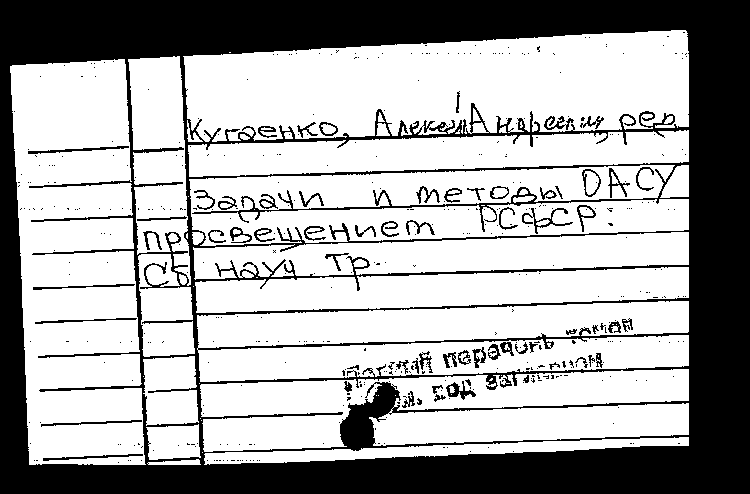 Кугаенко, Алексей Андреевич, ред.
Задачи и методы ОАСУ
просвещением РСФСР:
Сб науч. тр.
Полный перечень томов
см. под заглавием